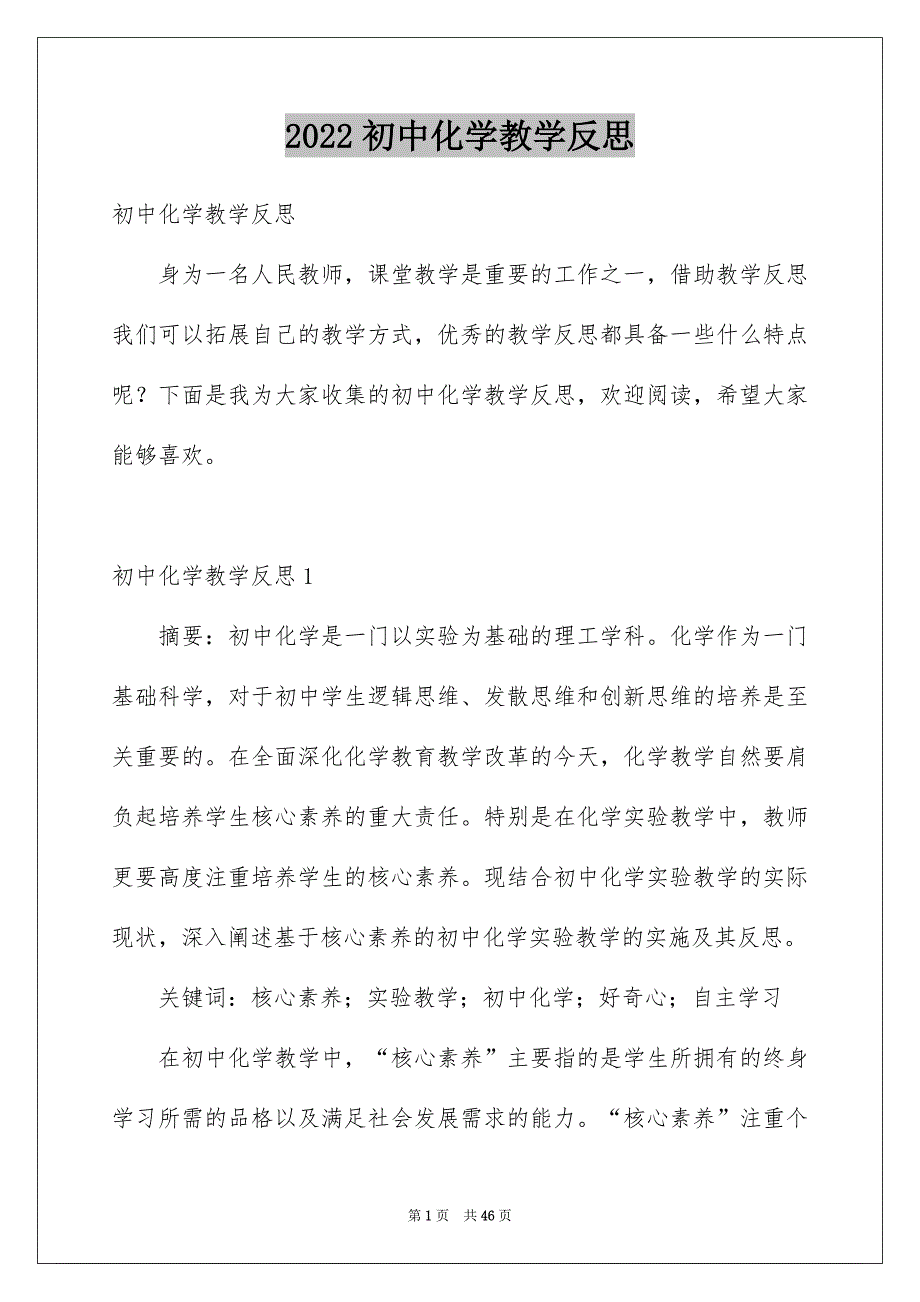 2022初中化学教学反思
初中化学教学反思
身为一名人民教师，课堂教学是重要的工作之一，借助教学反思
我们可以拓展自己的教学方式，优秀的教学反思都具备一些什么特点
呢？下面是我为大家收集的初中化学教学反思，欢迎阅读，希望大家
能够喜欢。
初中化学教学反思1
摘要：初中化学是一门以实验为基础的理工学科。化学作为一门
基础科学，对于初中学生逻辑思维、发散思维和创新思维的培养是至
关重要的。在全面深化化学教育教学改革的今天，化学教学自然要肩
负起培养学生核心素养的重大责任。特别是在化学实验教学中，教师
更要高度注重培养学生的核心素养。现结合初中化学实验教学的实际
现状，深入阐述基于核心素养的初中化学实验教学的实施及其反思。
关键词：核心素养；实验教学；初中化学；好奇心；自主学习
在初中化学教学中，“核心素养”主要指的是学生所拥有的终身
学习所需的品格以及满足社会发展需求的能力。“核心素养”注重个
第1页 共46页